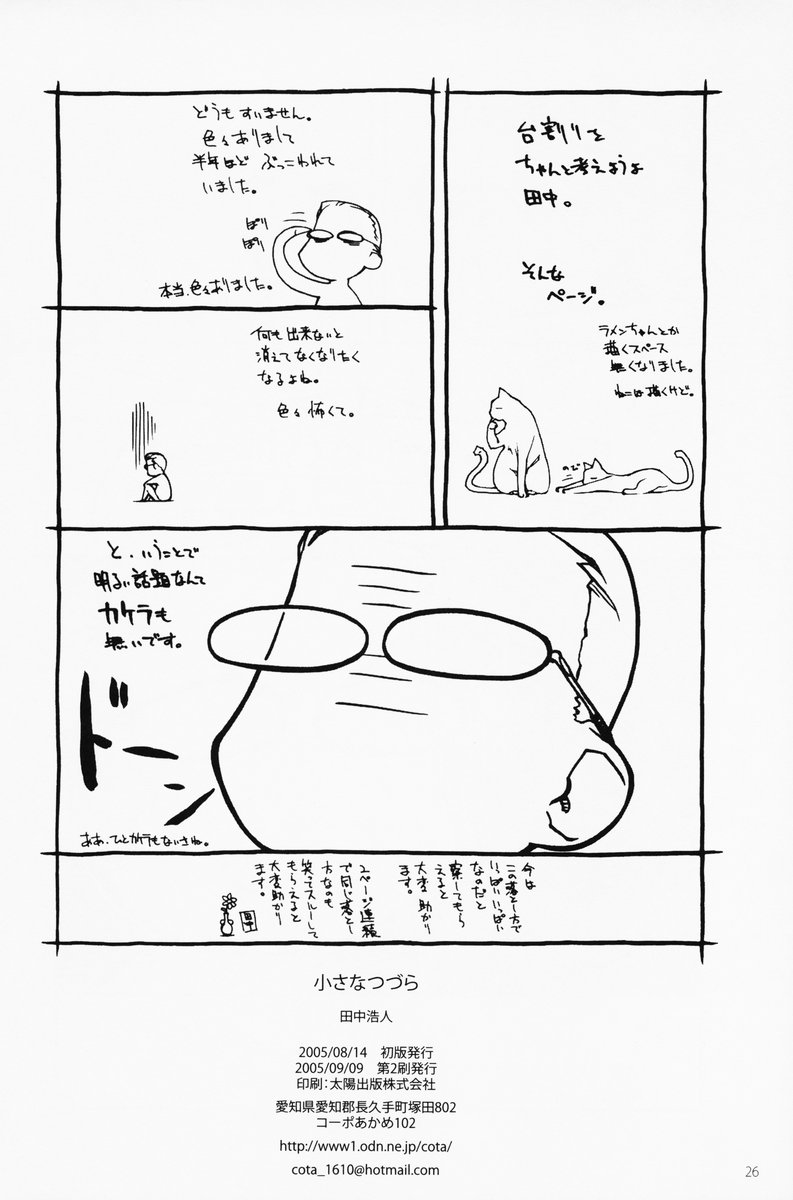 台割りを
ちゃんと考えようよ
田中。
そんな
ページ。
ラメンちゃんとか
描くスペース
無くなりました。
ねこは描くけど。
のび
どうもすいません。
色々ありまして
半年ほど ぶっこわれて
いました。
ぽり
ぽり
本当、色々ありました。
何も出来ないと
消えてなくなりたく
なるよね。
色々 怖くて。
と、いうことで
明るい話題なんて
カケラも
無いです。
ドーン
ああ、ひとカケラもないさね。
今は
この落とし方で
いっぱいいっぱい
なのだと
察してもら
えると
大変 助かり
ます。
2ページ連続
で同じ落とし
方なのも
笑ってスルーして
もらえると
大変助かり
ます。
田中
小さなつづら
田中浩人
2005/08/14 初版発行
2005/09/09 第2刷発行
印刷：太陽出版株式会社
愛知県愛知郡長久手町塚田802
コーポあかめ102
http://www1.odn.ne.jp/cota/
cota_1610@hotmail.com
26